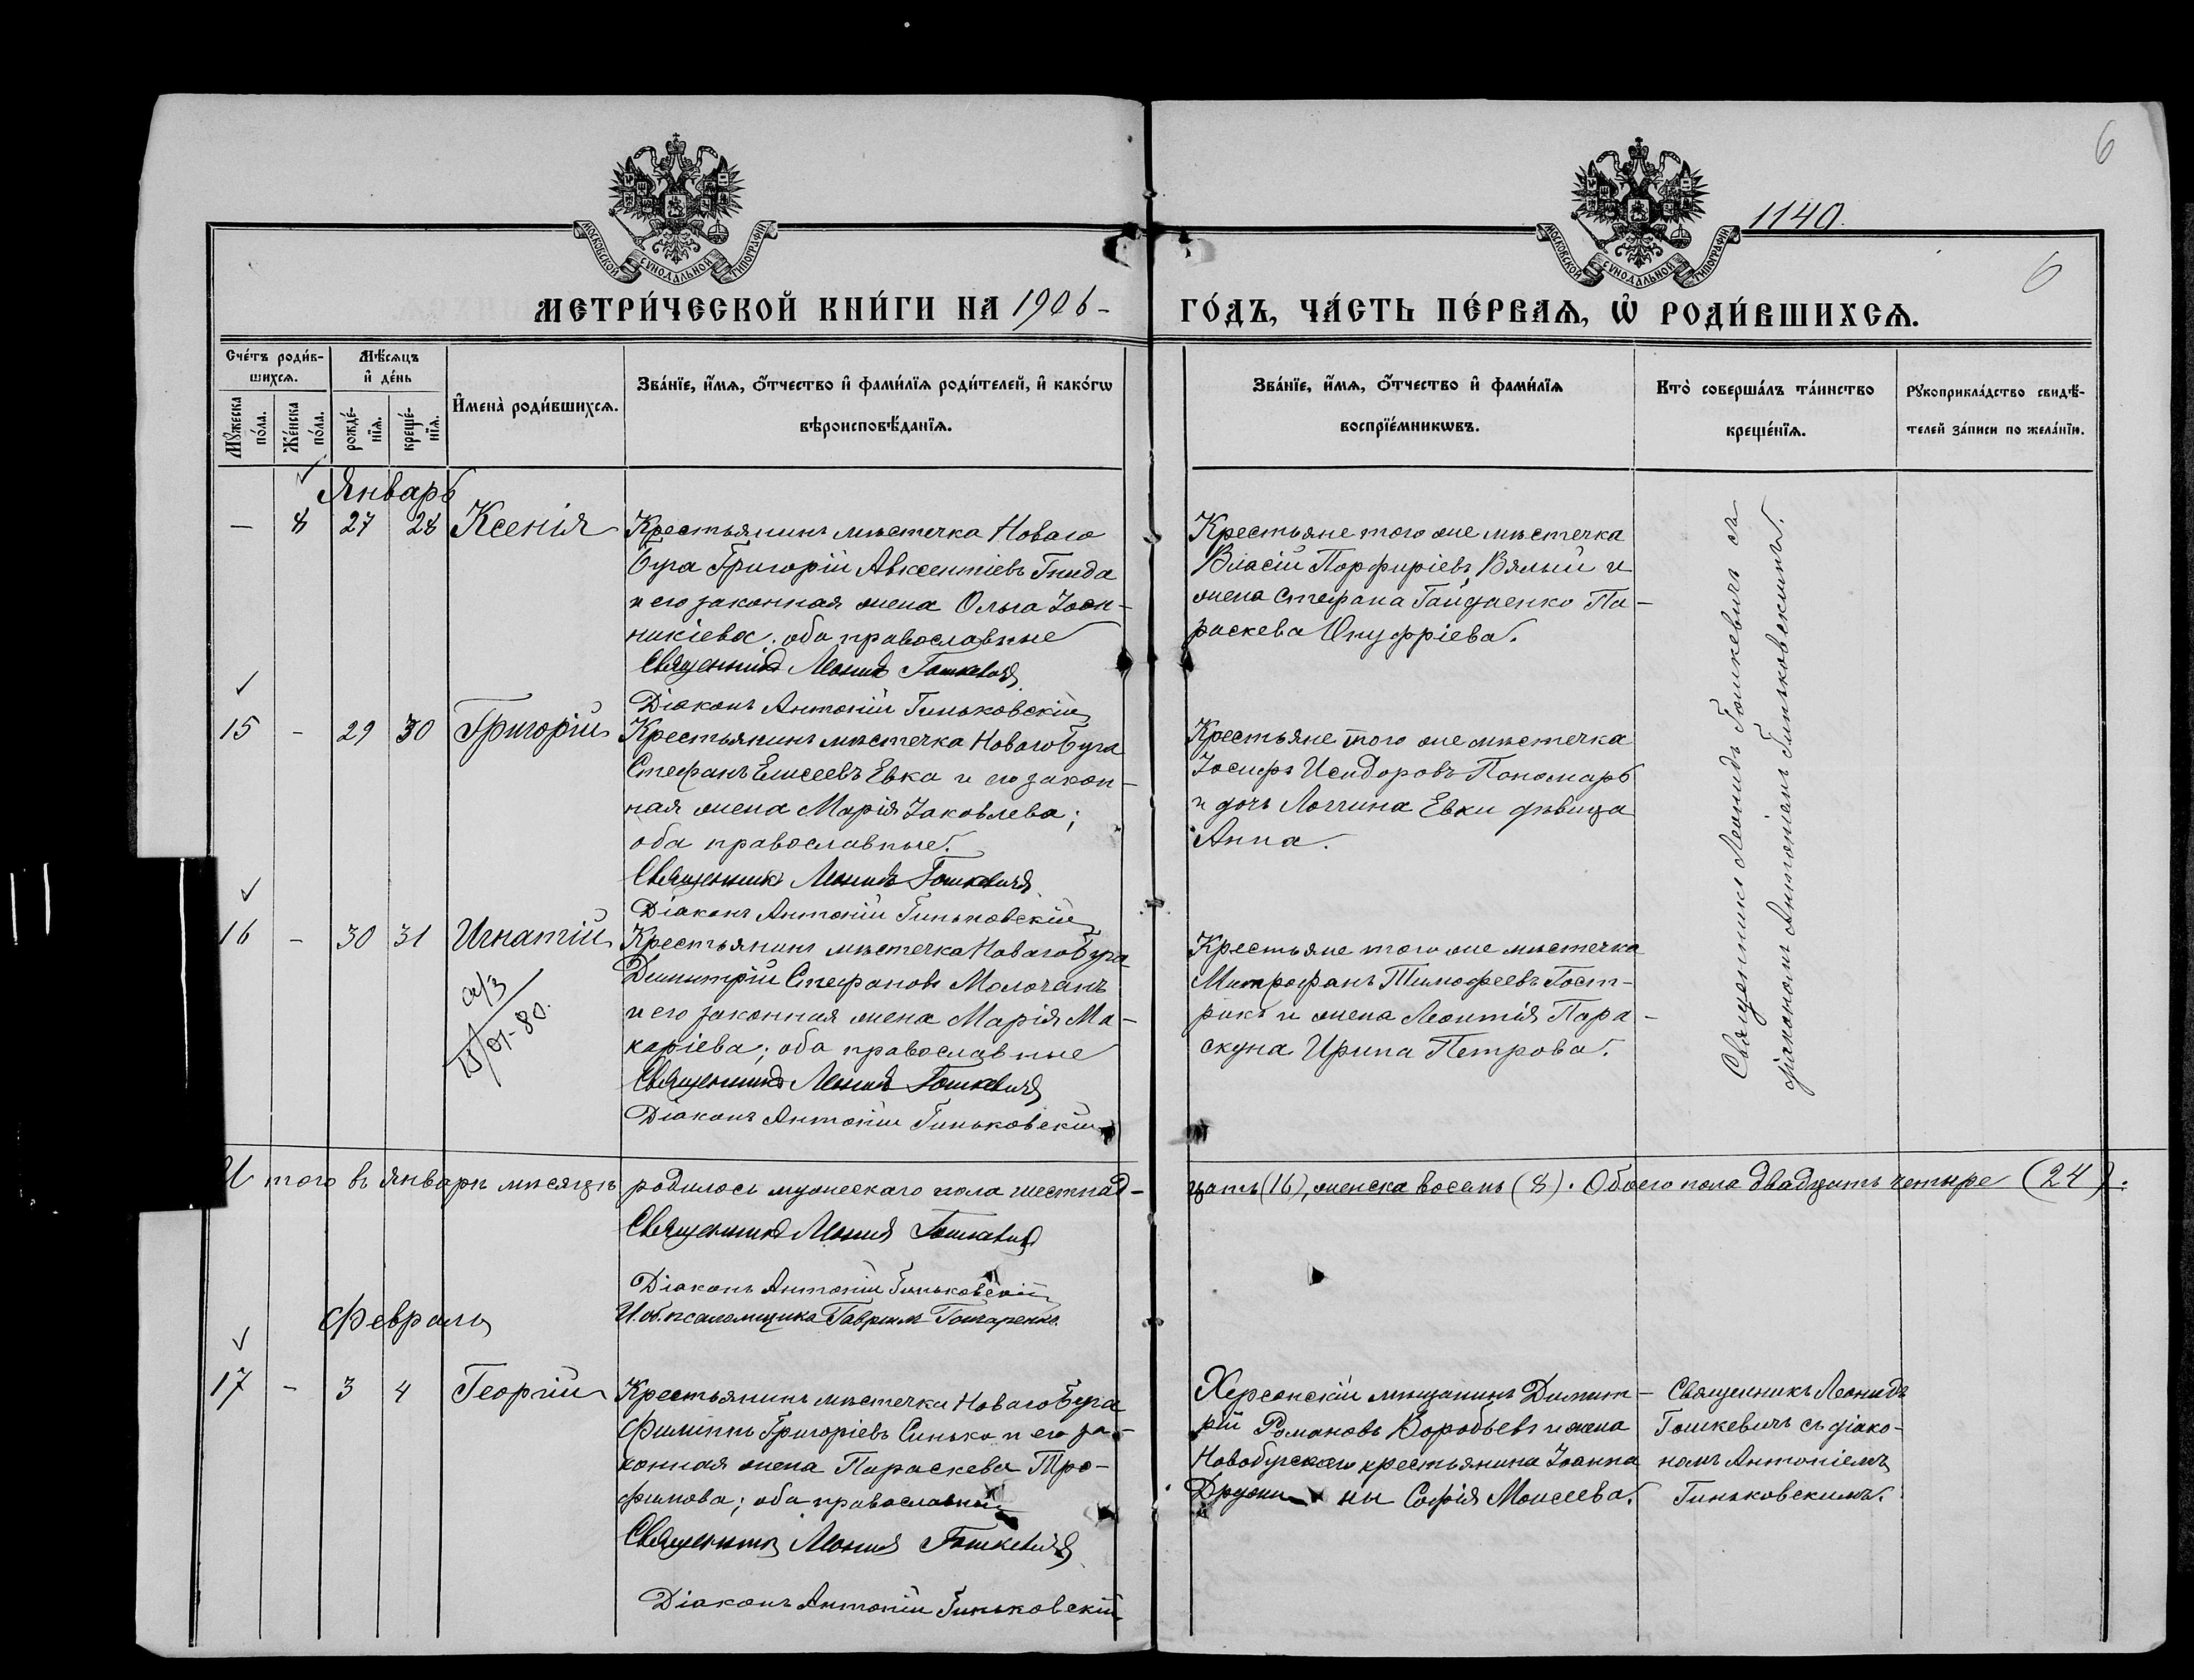 6
1140.
6
МОСКОВСКОЙ СѴНОДАЛЬНОЙ ТИПОГРАФІИ
МОСКОВСКОЙ СѴНОДАЛЬНОЙ ТИПОГРАФІИ
МЕТРИ́ЧЕСКОЙ КНИ́ГИ НА 1906- ГО́ДЪ, ЧА́СТЬ ПЕ́РВАѦ, Ѡ҆ РОДИ́ВШИХСѦ.
Сче́тъ роди́в-
шихсѧ.
Мꙋ́жеска по́ла.
Же́нска по́ла.
Мѣ́сѧцъ
и҆ де́нь
рожде́-
нїѧ.
креще́-
нїѧ.
И҆мена̀ роди́вшихсѧ.
Зва́нїе, и҆́мѧ, ѻ҆́тчество и҆ фами́лїѧ роди́телей, и҆ како́гѡ
вѣроисповѣ́данїѧ.
Зва́нїе, и҆́мѧ, ѻ҆́тчество и҆ фами́лїѧ
воспрїе́мникѡвъ.
Кто̀ соверша́лъ та́инство
креще́нїѧ.
Рꙋкоприкла́дство свидѣ́-
телей за́писи по жела́нїю.
Январь
— 8 27 28 Ксенія
Крестьянинъ мѣстечка Новаго
Буга Григорій Авксентіевъ Гнида
и его законная жена Ольга Іоан-
никіева; оба православные
Священникъ Леонидъ Гошкевичъ
Діаконъ Антоній Гиньковскій
Крестьяне того же мѣстечка
Власій Порфиріевъ Вялый и
жена Стефана Гайдаенко Па-
раскева Онуфріева.
15 - 29 30 Григорій
Крестьянинъ мѣстечка Новаго Буга
Стефанъ Елисеевъ Евка и его закон-
ная жена Марія Іаковлева;
оба православные.
Священникъ Леонидъ Гошкевичъ
Діаконъ Антоній Гиньковскій
Крестьяне того же мѣстечка
Іосифъ Исидоровъ Пономарь
и дочь Логгина Евки дѣвица
Анна.
16 - 30 31 Игнатій
Крестьянинъ мѣстечка Новаго Буга
Димитрій Стефановъ Молочанъ
и его законная жена Марія Ма-
каріева; оба православные
Священникъ Леонидъ Гошкевичъ
Діаконъ Антоній Гиньковскій
Крестьяне того же мѣстечка
Митрофанъ Тимофеевъ Гост-
рикъ и жена Леонтія Пара-
скуна Ирина Петрова.
Священникъ Леонидъ Гошкевичъ съ
діакономъ Антоніемъ Гиньковскимъ.
Итого въ январѣ мѣсяцѣ родилось мужескаго пола шестнад-
цать (16), женска восемь (8). Обоего пола двадцать четыре (24).
Священникъ Леонидъ Гошкевичъ
Діаконъ Антоній Гиньковскій
И. об. псаломщика Гавріилъ Гончаренко.
Февраль
17 - 3 4 Георгій
Крестьянинъ мѣстечка Новаго Буга
Филиппъ Григоріевъ Синько и его за-
конная жена Параскева Тро-
фимова; оба православные
Священникъ Леонидъ Гошкевичъ
Діаконъ Антоній Гиньковскій
Херсонскій мѣщанинъ Димит-
рій Романовъ Воробьевъ и жена
Новобугскаго крестьянина Іоанна
Дружи- ны Софія Моисеева.
Священникъ Леонидъ
Гошкевичъ съ діако-
номъ Антоніемъ
Гиньковскимъ.